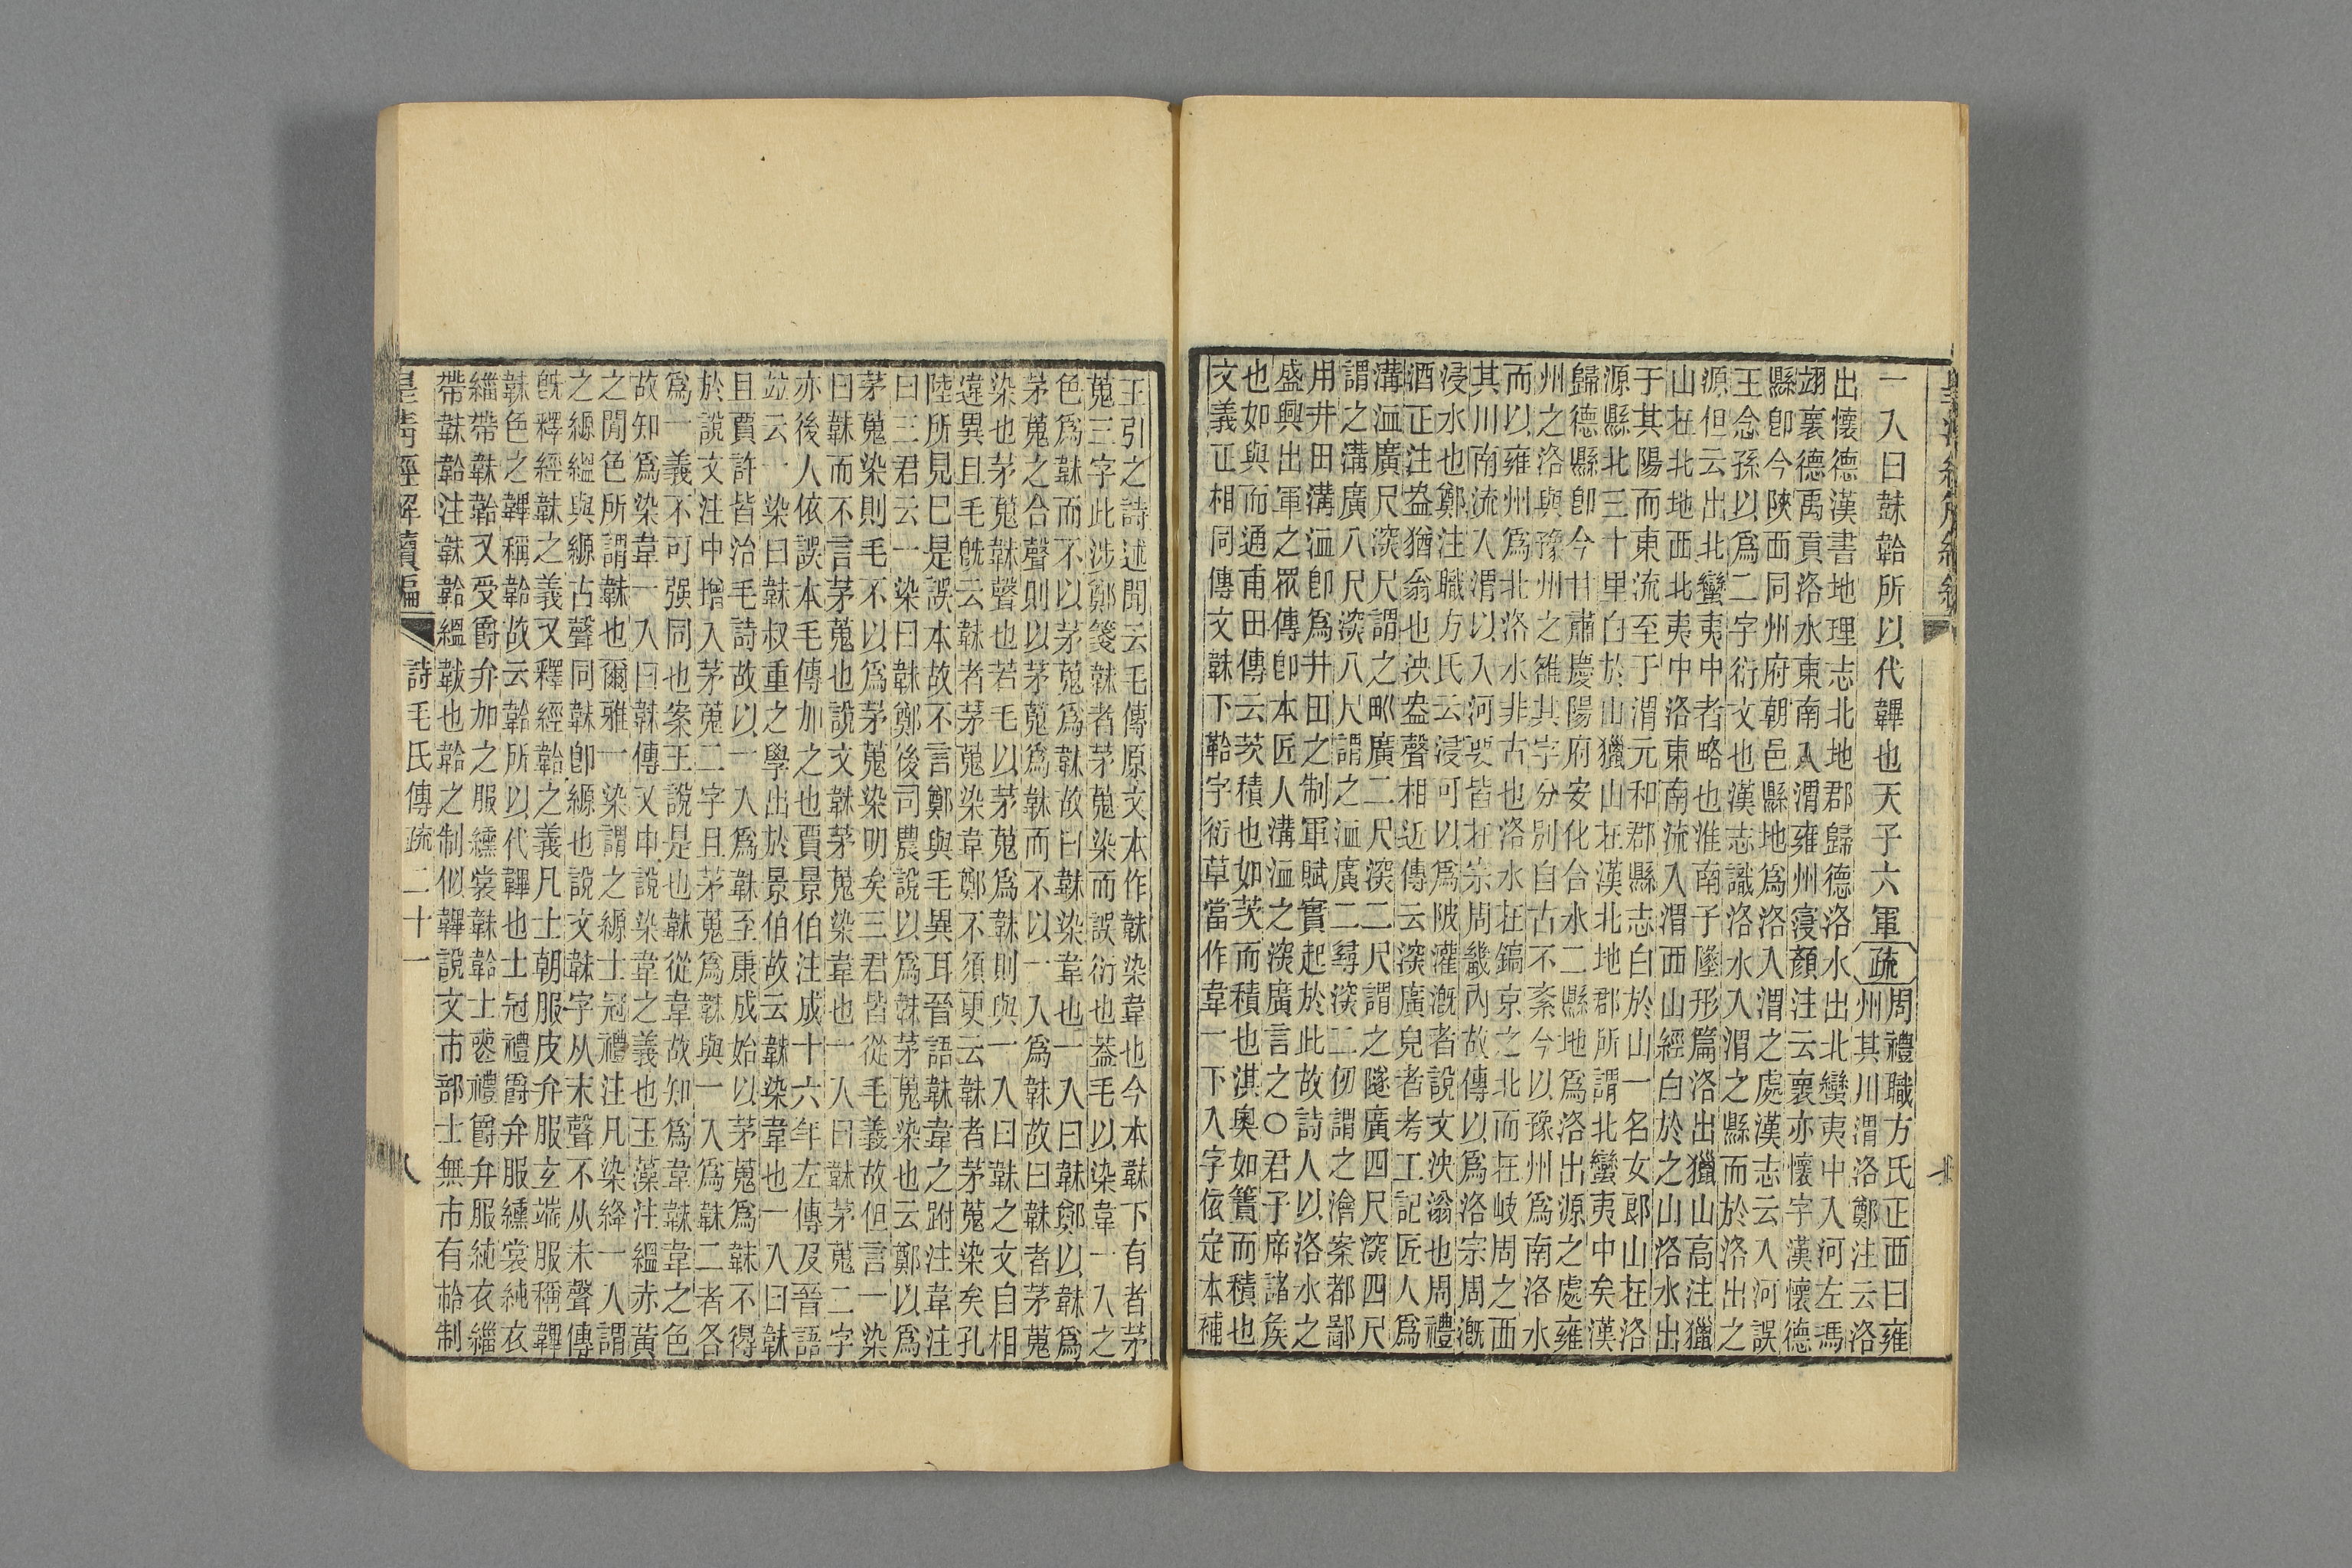 一入曰韎韐所以代韠也天子六軍疏周禮職方氏正西曰雍
州其川渭洛鄭注云洛
出懷德漢書地理志北地郡歸德洛水出北蠻夷中入河左馮
翊褱德禹貢洛水東南入渭雍州寖顏注云褱亦懷字漢懷德
縣卽今陝西同州府朝邑縣地爲洛入渭之處漢志云入河誤
王念孫以爲二字衍文也漢志識洛水入渭之縣而於洛出之
源但云出北蠻夷中者略也淮南子墬形篇洛出獵山高注獵
山在北地西北夷中洛東南流入渭西山經白於之山洛水出
于其陽而東流至于渭元和郡縣志白於山一名女郎山在洛
源縣北三十里白於山獵山在漢北地郡所謂北蠻夷中矣漢
歸德縣卽今甘肅慶陽府安化合水二縣地爲洛出源之處雍
州之洛與豫州之雒其字分別自古不紊今以豫州爲南洛水
而以雍州爲北洛水非古也洛水在鎬京之北而在岐周之西
其川南流入渭以入河要皆在宗周畿內故傳以爲洛宗周漑
浸水也鄭注職方氏云浸可以爲陂灌漑者說文泱滃也周禮
酒正注盎猶翁也泱盎聲相近傳云深廣皃者考工記匠人爲
溝洫廣尺深尺謂之𤰕廣二尺深二尺謂之隧廣四尺深四尺
謂之溝廣八尺深八尺謂之洫廣二尋深二仞謂之澮案都鄙
用井田溝洫卽爲井田之制軍賦實起於此故詩人以洛水之
盛興出軍之眾傳卽本匠人溝洫之深廣言之○君子席諸矦
也如與而通甫田傳云茨積也如茨而積也淇奧如簀而積也
文義正相同傳文韎下韐字衍草當作韋一下入字依定本補
王引之詩述聞云毛傳原文本作韎染韋也今本韎下有者茅
蒐三字此涉鄭箋韎者茅蒐染而誤衍也葢毛以染韋一入之
色爲韎而不以茅蒐爲韎故曰韎染韋也一入曰韎鄭以韎爲
茅蒐之合聲則以茅蒐爲韎而不以一入爲韎故曰韎者茅蒐
染也茅蒐韎聲也若毛以茅蒐爲韎則與一入曰韎之文自相
違異且毛旣云韎者茅蒐染韋鄭不須更云韎者茅蒐染矣孔
陸所見已是誤本故不言鄭與毛異耳晉語韎韋之跗注韋注
曰三君云一染曰韎鄭後司農說以爲韎茅蒐染也云鄭以爲
茅蒐染則毛不以爲茅蒐染明矣三君皆從毛義故但言一染
曰韎而不言茅蒐也說文韎茅蒐染韋也一入曰韎茅蒐二字
亦後人依誤本毛傳加之也賈景伯注成十六年左傳及晉語
竝云一染曰韎叔重之學出於景伯故云韎染韋也一入曰韎
且賈許皆治毛詩故以一入爲韎至康成始以茅蒐爲韎不得
於說文注中增入茅蒐二字且茅蒐爲韎與一入爲韎二者各
爲一義不可强同也案王說是也韎從韋故知爲韋韎韋之色
故知爲染韋一入曰韎傳又申說染韋之義也玉藻注縕赤黃
之閒色所謂韎也爾雅一染謂之縓士冠禮注凡染絳一入謂
之縓縕與縓古聲同韎卽縓也說文韎字从末聲不从未聲傳
旣釋經韎之義又釋經韐之義凡士朝服皮弁服玄端服稱韠
韎色之韠稱韐故云韐所以代韠也士冠禮爵弁服纁裳純衣
緇帶韎韐又受爵弁加之服纁裳韎韐士喪禮爵弁服純衣緇
帶韎韐注韎韐縕韍也韐之制似韠說文巿部士無巿有韐制
皇淸經解續編
詩毛氏傳疏二十一
八